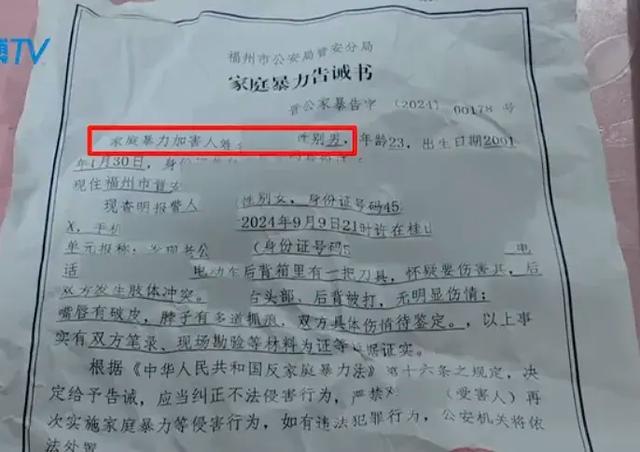 TV
福州市公安局晋安分局
家庭暴力告诫书
晋公家暴告字〔2024〕00178号
家庭暴力加害人姓名 性别男，年龄23，出生日期2001
年1月30日，
现住福州市晋安
现查明报警人 性别女，身份证号码45
X，手机 2024年9月9日21时许在桂山
单元报称：发现老公 （身份证号码5 电
话 电动车后背箱里有一把刀具，怀疑要伤害其，后
双方发生肢体冲突。 右头部、后背被打，无明显伤情；
嘴唇有破皮，脖子有多道抓痕，双方具体伤情待鉴定。，以上事
实有双方笔录、现场勘验等材料为证等证据证实。
根据《中华人民共和国反家庭暴力法》第十六条之规定，决
定给予告诫，应当纠正不法侵害行为，严禁对 （受害人）再
次实施家庭暴力等侵害行为，如有违法犯罪行为，公安机关将依
法处置